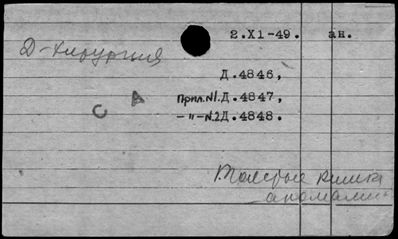 2.XI-49. ан.
Д-хирургия
Д.4846,
Прил.№1.Д.4847,
С А
-"-№2Д.4848.
Толстые кишки
аномалии